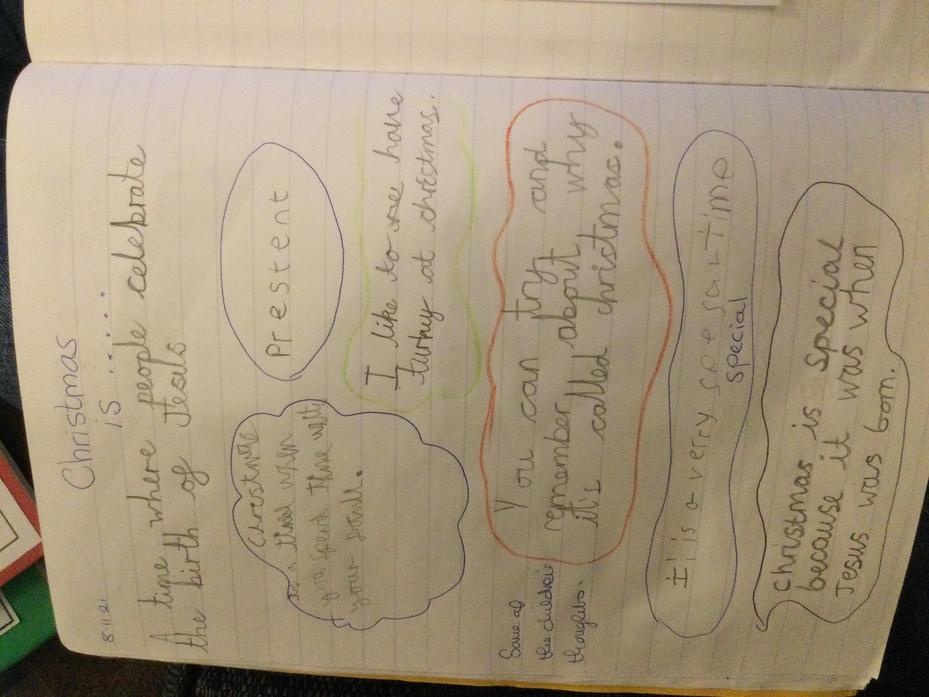 8.11.21
Christmas
is ......
A time where people celebrate
the birth of Jesus
Prestent
is a time when
you spend time with
your
I like to have
turkey at christmas.
You can try and
remember about why
it's called christmas.
Some of
the children
thoughts.
It is a verry spe sal time
special
christmas is special
because it was when
Jesus was born.